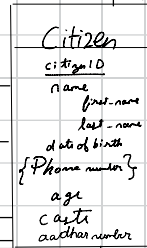 Citizen
citizen ID
name
first-name
last-name
date of birth
{Phone number}
age
caste
aadhar number